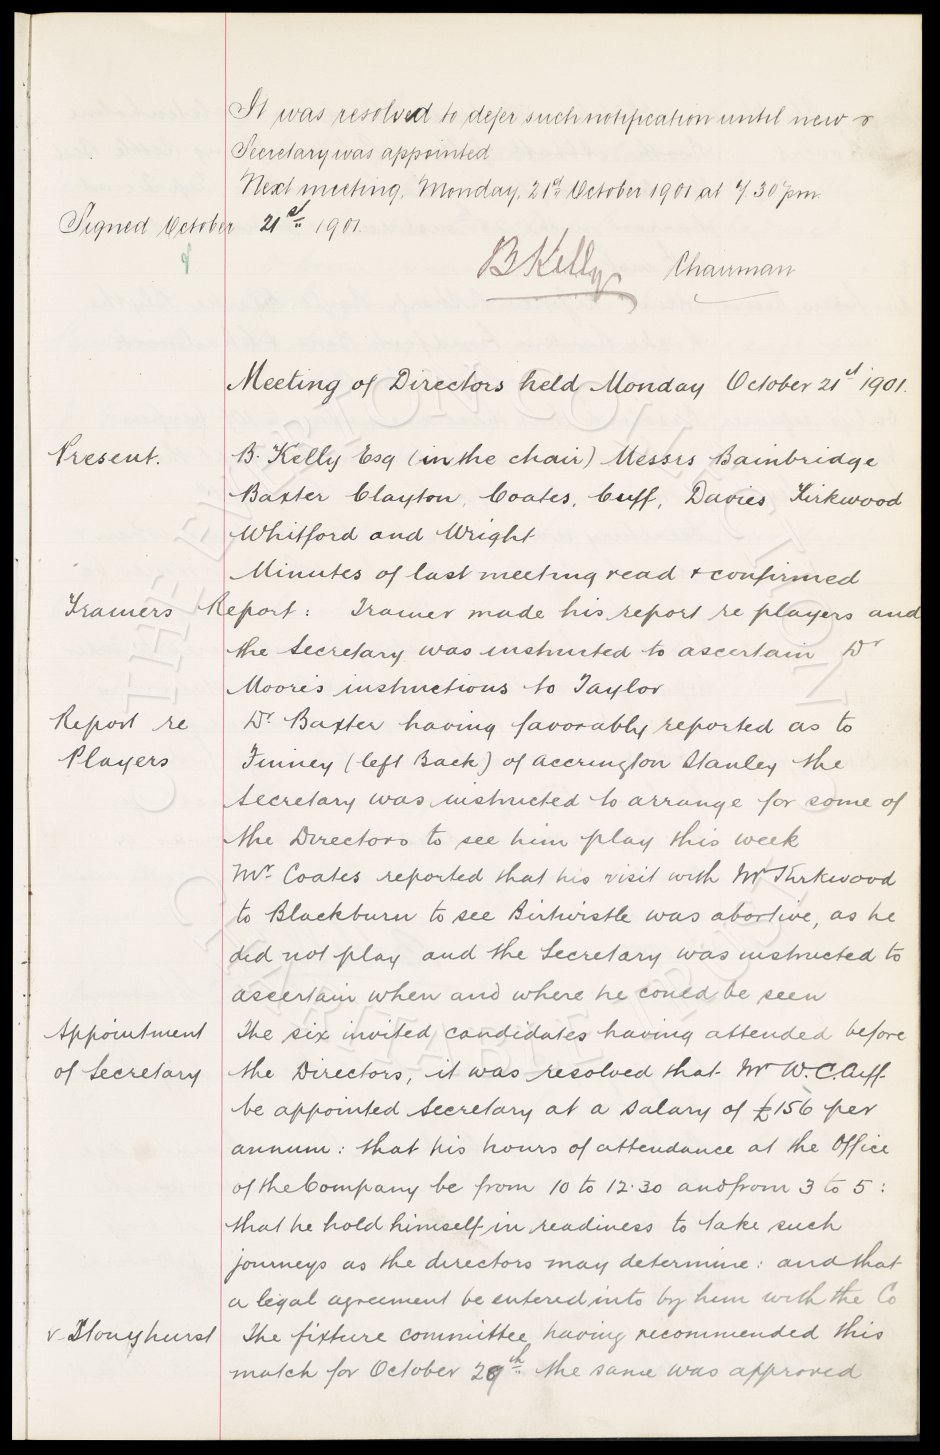 It was resolved to defer such notification until new
Secretary was appointed
Next meeting, Monday, 21st October 1901 at 7/30 pm
Signed October 21st 1901
B Kelly Chairman
Meeting of Directors held Monday October 21st 1901.
Present. B. Kelly Esq (in the chair) Messrs Bainbridge
Baxter Clayton, Coates, Cuff, Davies Kirkwood
Whitford and Wright
Minutes of last meeting read & confirmed
Trainers Report: Trainer made his report re players and
the Secretary was instructed to ascertain Dr
Moore's instructions to Taylor
Report re Dr Baxter having favorably reported as to
Players Finney (left Back) of Accrington Stanley the
Secretary was instructed to arrange for some of
the Directors to see him play this week
Mr Coates reported that his visit with Mr Kirkwood
to Blackburn to see Birtwistle was abortive, as he
did not play and the Secretary was instructed to
ascertain when and where he could be seen
Appointment The six invited candidates having attended before
of Secretary the Directors, it was resolved that Mr W.C. Cuff
be appointed Secretary at a salary of £156 per
annum: that his hours of attendance at the Office
of the Company be from 10 to 12.30 and from 3 to 5:
that he hold himself in readiness to take such
journeys as the directors may determine: and that
a legal agreement be entered into by him with the Co
v Stonyhurst The fixture committee having recommended this
match for October 29th the same was approved